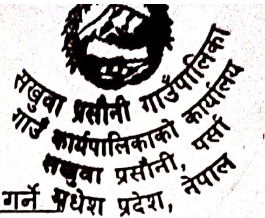 सखुवा प्रसौनी गाउँपालिका
गाउँ कार्यपालिकाको कार्यालय
सखुवा प्रसौनी, पर्सा
गर्ने मधेश प्रदेश, नेपाल